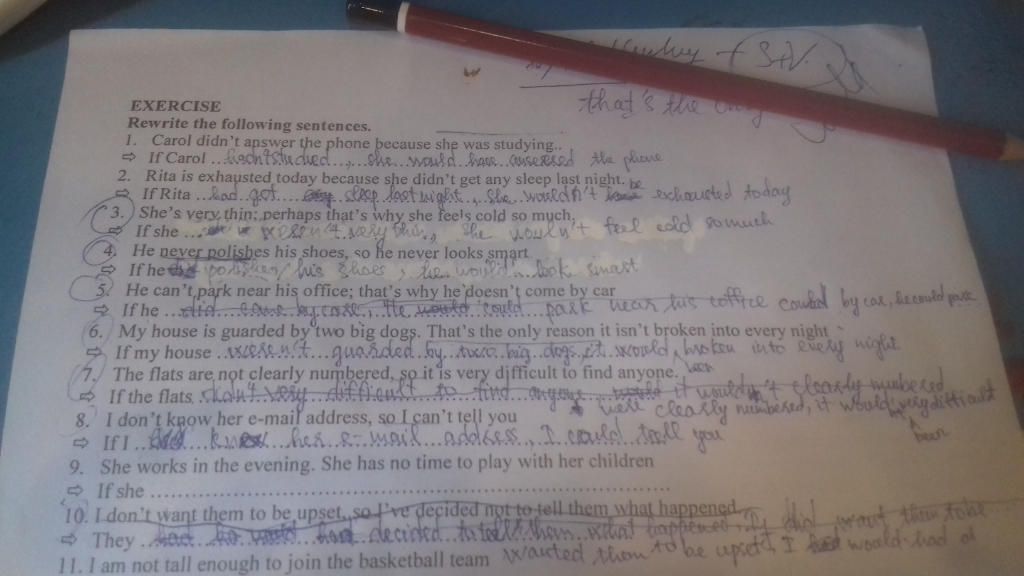 + S+V
that's the only
EXERCISE
Rewrite the following sentences.
1. Carol didn't answer the phone because she was studying..
⇨ If Carol ...hadn't studied..., she would have answered the phone
2. Rita is exhausted today because she didn't get any sleep last night.
⇨ If Rita ...had got any sleep last night, she wouldn't be exhausted today
3. She's very thin; perhaps that's why she feels cold so much.
⇨ If she ... weren't very thin, she wouldn't feel cold so much
4. He never polishes his shoes, so he never looks smart
⇨ If he polished his shoes, he would look smart
5. He can't park near his office; that's why he doesn't come by car
⇨ If he ...did come by car, He would could park near his office by car, he could park
6. My house is guarded by two big dogs. That's the only reason it isn't broken into every night
⇨ If my house ...weren't guarded by two big dogs, it would broken into every night
been
7. The flats are not clearly numbered, so it is very difficult to find anyone.
⇨ If the flats ...didn't very difficult to find anyone, it wouldn't clearly numbered
were clearly numbered, it would very difficult
been
8. I don't know her e-mail address, so I can't tell you
⇨ If I ... knew her e-mail address, I could tell you
9. She works in the evening. She has no time to play with her children
⇨ If she ..........................................................
10. I don't want them to be upset, so I've decided not to tell them what happened.
⇨ They ... decided to tell them what happened, If did want them to be
wanted them to be upset, I would had
11. I am not tall enough to join the basketball team